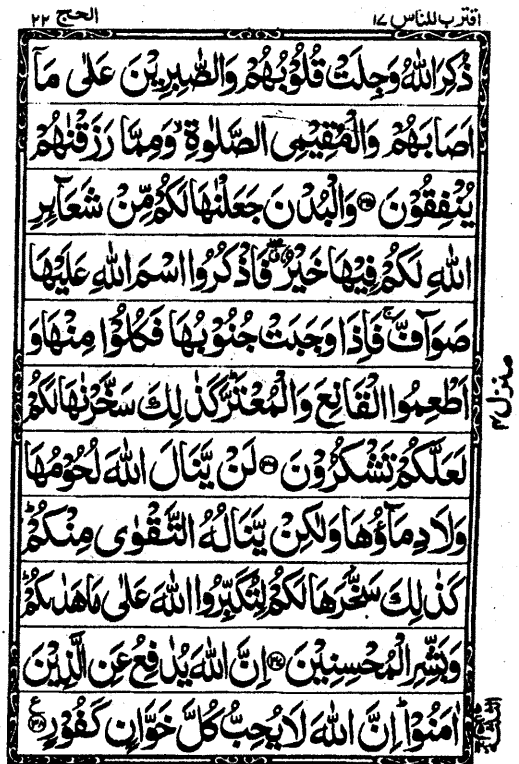 اقترب للناس ۱۷
الحج ۲۲
ذُكِرَ اللّٰهُ وَجِلَتْ قُلُوْبُهُمْ وَالصّٰبِرِيْنَ عَلٰى مَآ
اَصَابَهُمْ وَالْمُقِيْمِى الصَّلٰوةِ ۙ وَمِمَّا رَزَقْنٰهُمْ
يُنْفِقُوْنَ ۝۳۵ وَالْبُدْنَ جَعَلْنٰهَا لَكُمْ مِّنْ شَعَآىِٕرِ
اللّٰهِ لَكُمْ فِيْهَا خَيْرٌ ۖ فَاذْكُرُوا اسْمَ اللّٰهِ عَلَيْهَا
صَوَآفَّ ۚ فَاِذَا وَجَبَتْ جُنُوْبُهَا فَكُلُوْا مِنْهَا وَ
اَطْعِمُوا الْقَانِعَ وَالْمُعْتَرَّ ؕ كَذٰلِكَ سَخَّرْنٰهَا لَكُمْ
لَعَلَّكُمْ تَشْكُرُوْنَ ۝۳۶ لَنْ يَّنَالَ اللّٰهَ لُحُوْمُهَا
وَلَا دِمَآؤُهَا وَلٰكِنْ يَّنَالُهُ التَّقْوٰى مِنْكُمْ ؕ
كَذٰلِكَ سَخَّرَهَا لَكُمْ لِتُكَبِّرُوا اللّٰهَ عَلٰى مَا هَدٰىكُمْ ؕ
وَبَشِّرِ الْمُحْسِنِيْنَ ۝۳۷ اِنَّ اللّٰهَ يُدٰفِعُ عَنِ الَّذِيْنَ
اٰمَنُوْا ؕ اِنَّ اللّٰهَ لَا يُحِبُّ كُلَّ خَوَّانٍ كَفُوْرٍ ۝۳۸
منزل ۴